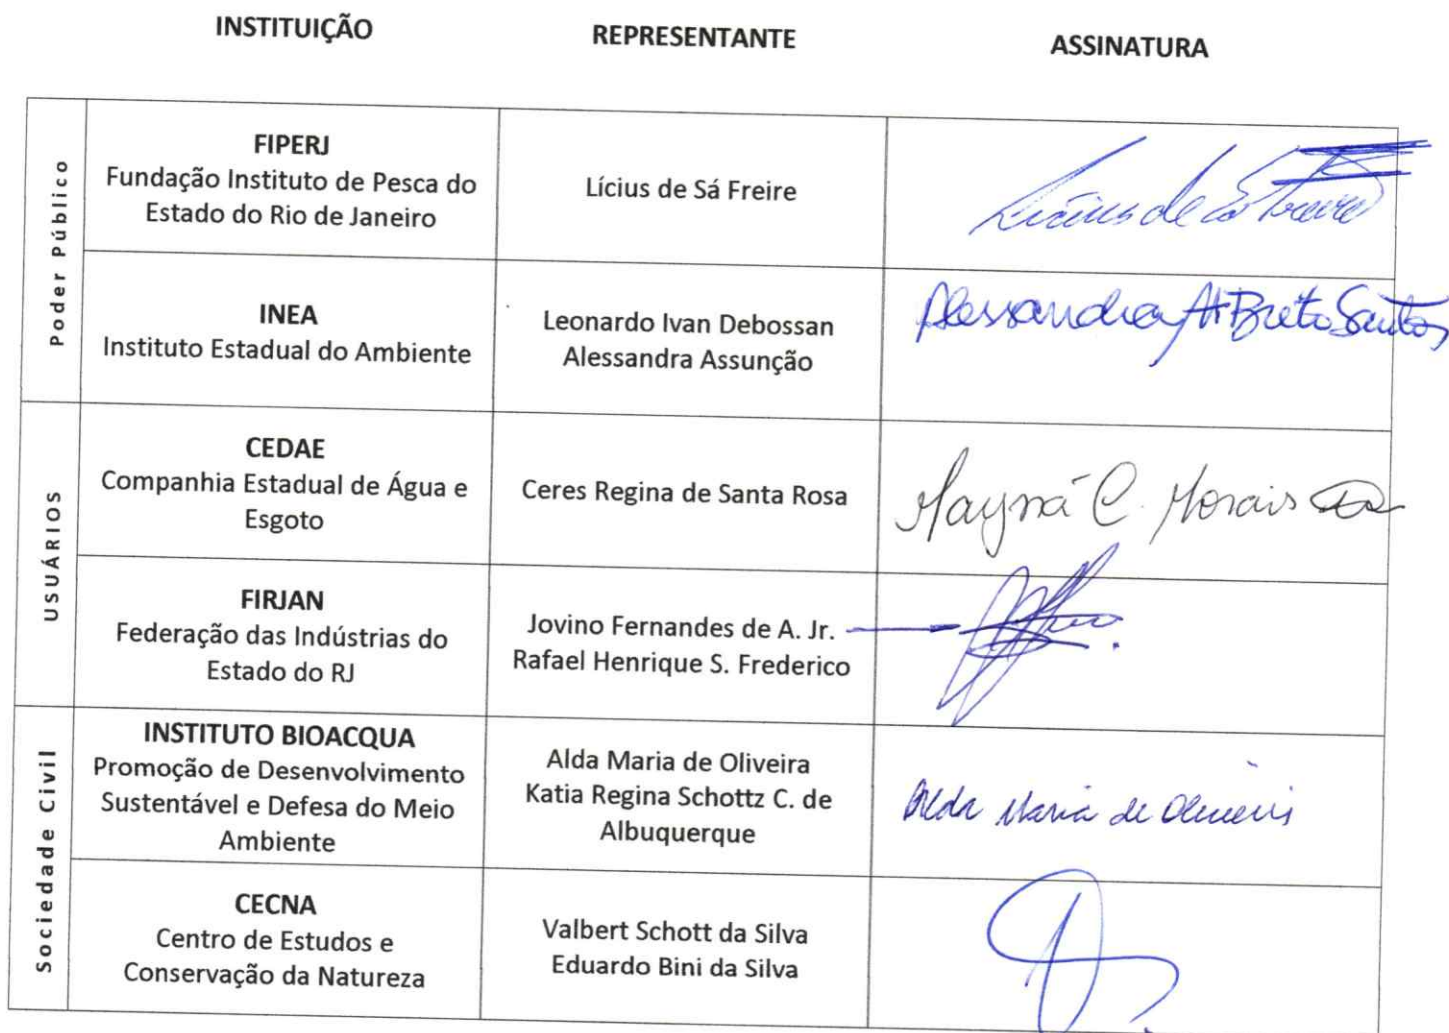 INSTITUIÇÃO
REPRESENTANTE
ASSINATURA
Poder Público
FIPERJ
Fundação Instituto de Pesca do
Estado do Rio de Janeiro
Lícius de Sá Freire
Lícius de Sá Freire
INEA
Instituto Estadual do Ambiente
Leonardo Ivan Debossan
Alessandra Assunção
Alessandra A. Brito Santos
USUÁRIOS
CEDAE
Companhia Estadual de Água e
Esgoto
Ceres Regina de Santa Rosa
Mayná C. Morais
FIRJAN
Federação das Indústrias do
Estado do RJ
Jovino Fernandes de A. Jr.
Rafael Henrique S. Frederico
Sociedade Civil
INSTITUTO BIOACQUA
Promoção de Desenvolvimento
Sustentável e Defesa do Meio
Ambiente
Alda Maria de Oliveira
Katia Regina Schottz C. de
Albuquerque
Alda Maria de Oliveira
CECNA
Centro de Estudos e
Conservação da Natureza
Valbert Schott da Silva
Eduardo Bini da Silva